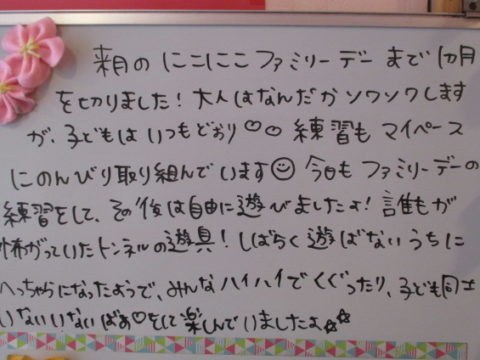 来月の にこにこファミリーデー まで 1カ月
を切りました！大人はなんだかソワソワします
が、子どもは いつもどおり♡♡ 練習も マイペース
にのんびり取り組んでいます☺ 今日も ファミリーデーの
練習をして、その後は自由に遊びましたよ！誰もが
怖がっていたトンネルの遊具！しばらく遊ばないうちに
へっちゃらになったようで、みんなハイハイでくぐったり、子ども同士
いないいないばあ♡をして楽しんでいましたよ☆☆